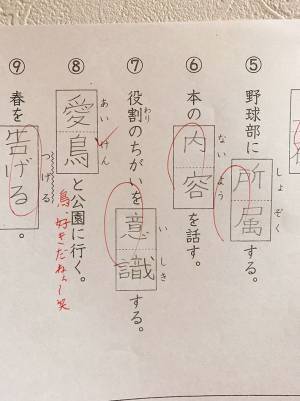 ⑤ 野球部に所属する。
しょ ぞく
⑥ 本の内容を話す。
ない よう
⑦ 役割のちがいを意識する。
わり
い しき
⑧ 愛鳥と公園に行く。
あい けん
鳥、好きだねぇー笑
⑨ 春を告げる。
つげる